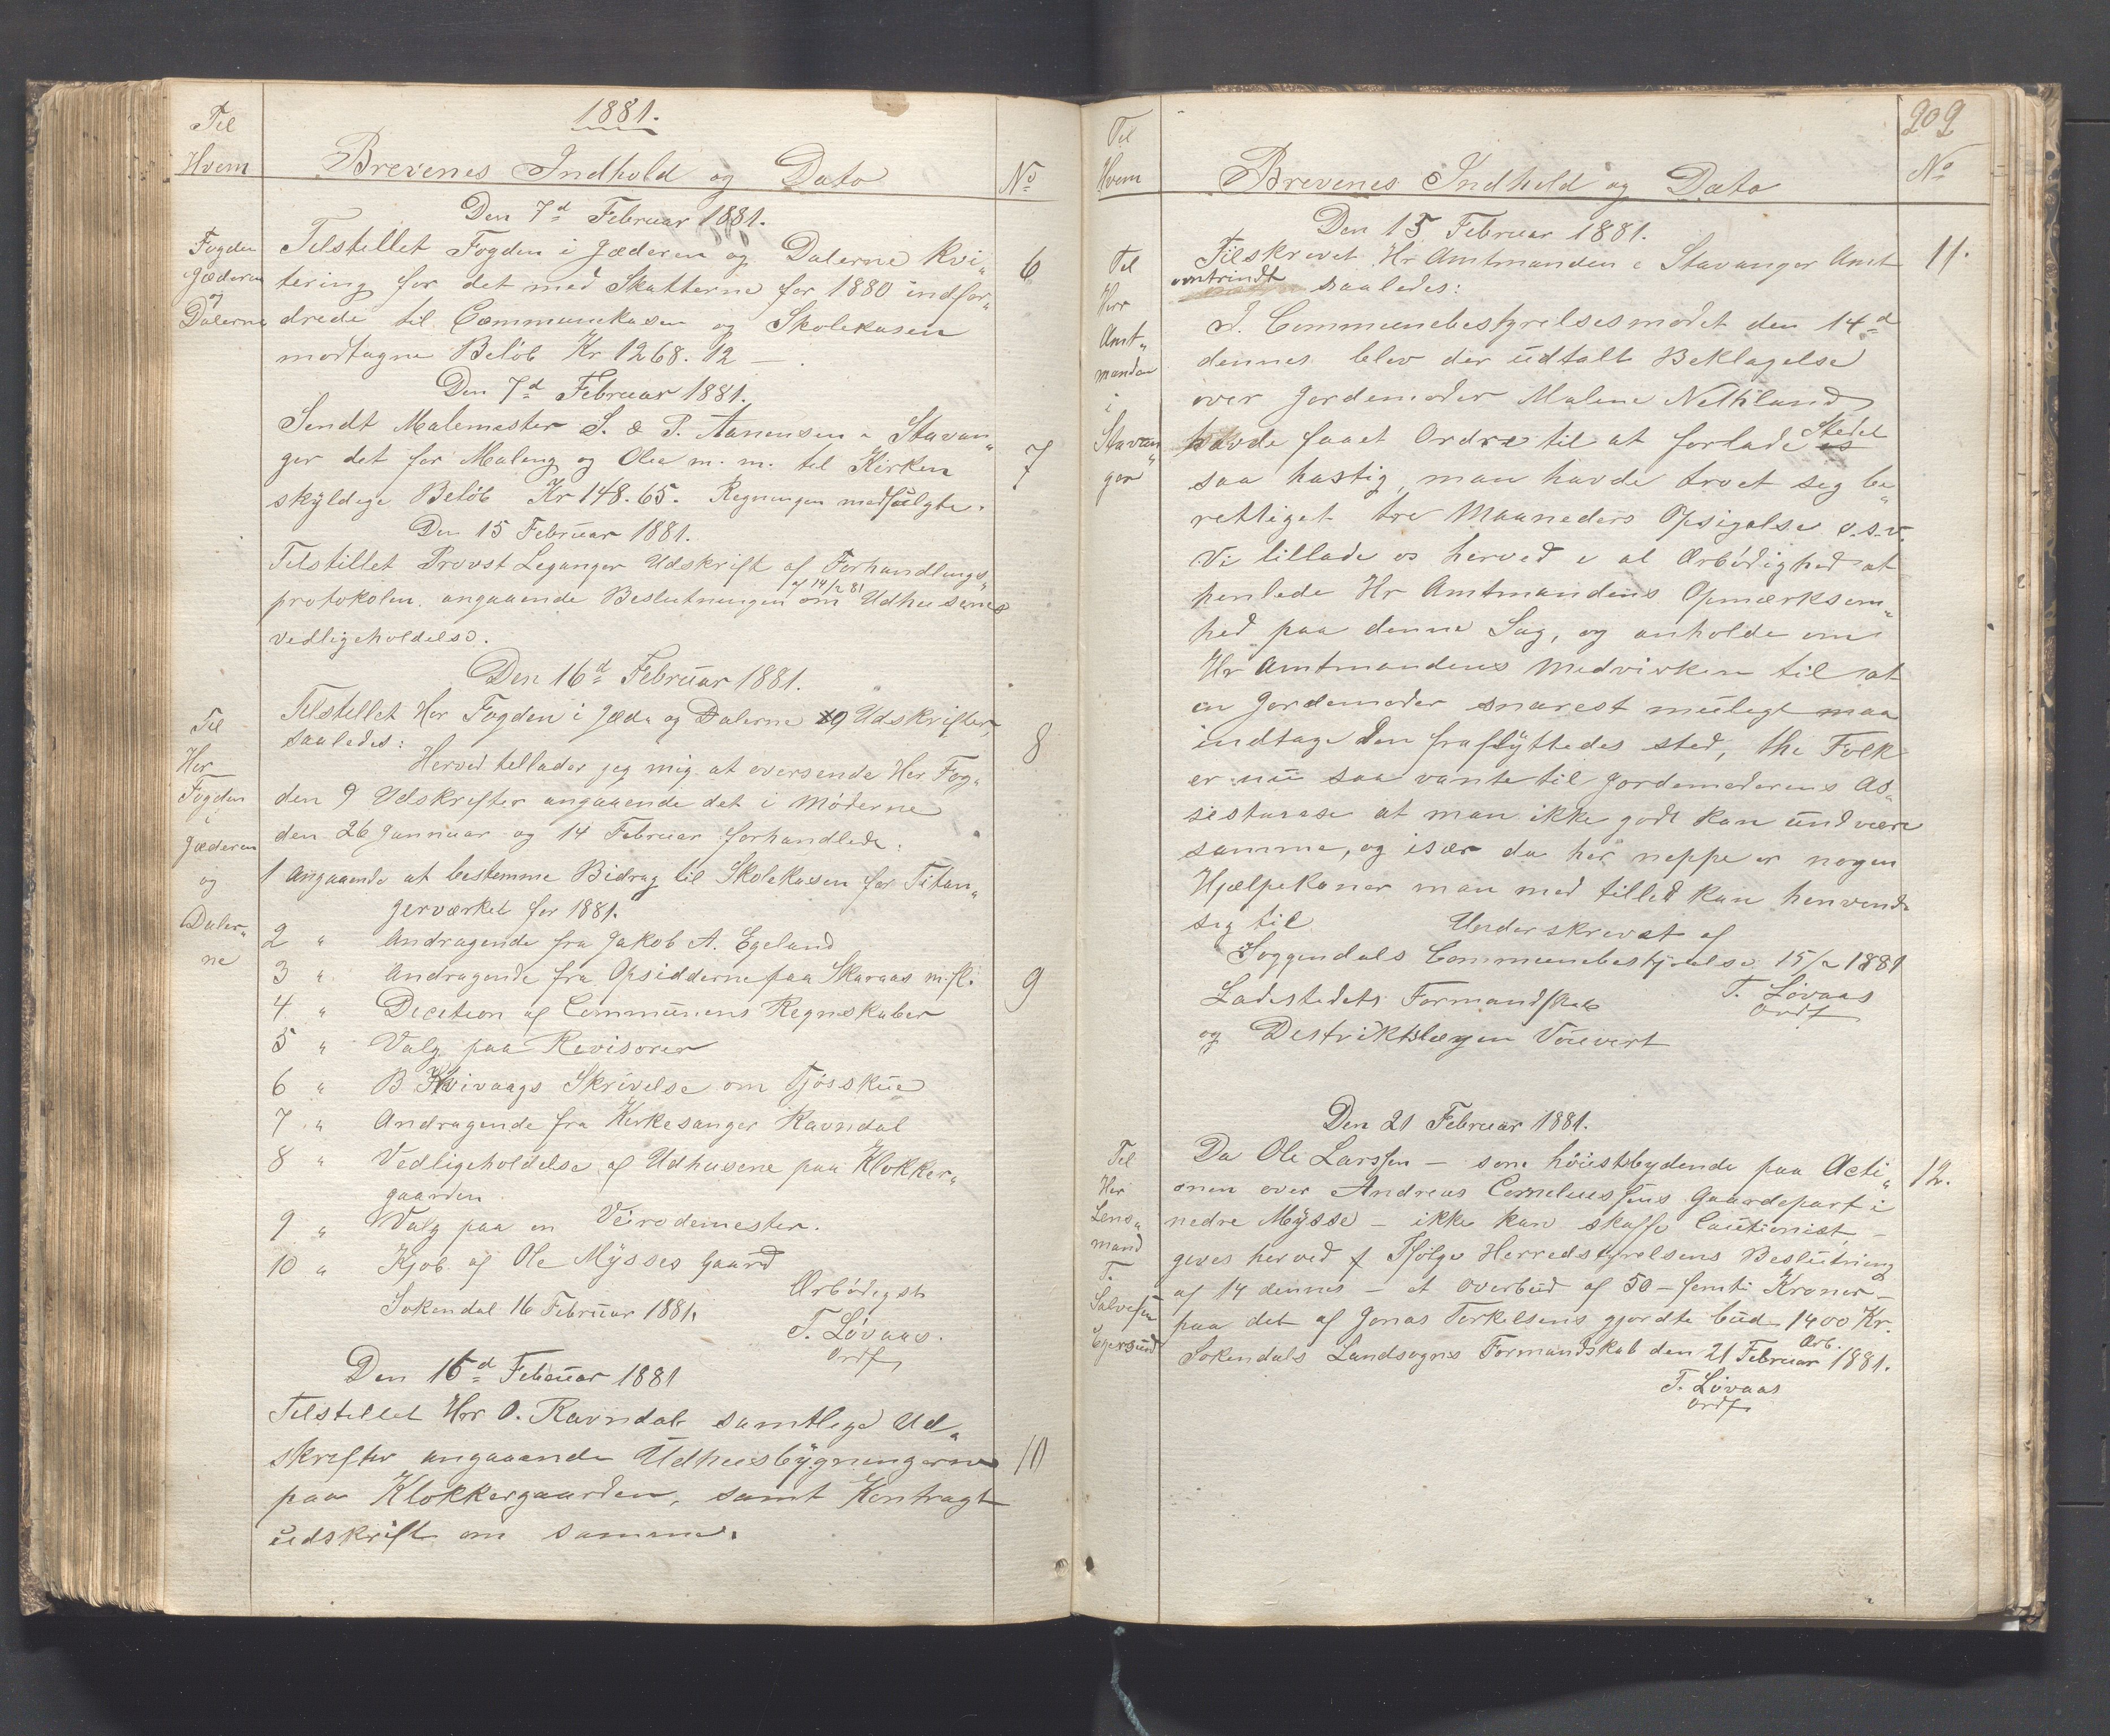 1881.
Til
Hvem
Brevenes Indhold og Dato
No
Den 7d Februar 1881.
Fogden
Jæderen
og
Dalerne
Tilstillet Fogden i Jæderen og Dalerne Kvi„
tering for det med Skatterne for 1880 indfor„
drede til Communekasen og Skolekasen
modtagne Beløb Kr 1268.12 —
6
Den 7d Februar 1881.
Sendt Malemester S. & P. Aanensen i Stavan„
ger det for Maling og Olie m. m. til Kirken
skyldige Beløb Kr 148.65. Regningen medfulgte.
7
Den 15 Februar 1881.
Tilstillet Provst Leganger Udskrift af Forhandlings„
protokolen angaaende Beslutningen af 14/2 81 om Udhusenes
vedligeholdelse.
8
Den 16d Februar 1881.
Til
Her
Fogden
i
Jæderen
og
Daler„
ne
Tilstillet Her Fogden i Jæd. og Dalerne 9 Udskrifter,
saaledes:
Herved tillader jeg mig at oversende Her Fog„
den 9 Udskrifter angaaende det i Møderne
den 26 Januar og 14 Februar forhandlede:
1 Angaaende at bestemme Bidrag til Skolekasen for Titan„
gerværket for 1881.
2 „ Andragende fra Jakob A. Egeland
3 „ Andragende fra Opsidderne paa Skaraas m.fl.
4 „ Decition af Communens Regnskaber
5 „ Valg paa Revisorer
6 „ B Hvivaags Skrivelse om Tjösskue
7 „ Andragende fra Kirkesanger Ravndal
8 „ Vedligeholdelse af Udhusene paa Klokker„
gaarden
9 „ Valg paa en Veirodemester.
10 „ Kjøb af Ole Mysses Gaard
9
Ærbødigst
Sokendal 16 Februar 1881.
T. Løvaas.
Ordf
Den 16d Februar 1881
Tilstillet Hrr O. Ravndal samtlige Ud„
skrifter angaaende Udhusbygningerne
paa Klokkergaarden, samt Kontragt
udskrift om samme.
10
202
Til
Hvem
Brevenes Indhold og Dato
No
Den 15 Februar 1881.
Til
Herr
Amt„
manden
i
Stavan„
ger
Tilskrevet Hr Amtmanden i Stavanger Amt
omtrindt saaledes:
I Communebestyrelsesmødet den 14d
dennes blev der udtalt Beklagelse
over Jordemoder Malene Netland
havde faaet Ordre til at forlade Stedet
saa hastig, man havde troet seg be„
rettiget tre Maaneders Opsigelse o.s.v.
Vi tillade os herved i al Ærbødighed at
henlede Hr Amtmandens Opmærksom„
hed paa denne Sag, og anholde om
Hr Amtmandens Medvirken til at
en Jordemoder snarest muligt maa
indtage den fraflyttedes sted, thi Folk
er nu saa vante til Jordemoderens As„
sistanse at man ikke godt kan undvære
samme, og især da her neppe er nogen
Hjælpekoner man med tillid kan henvende
sig til.
11.
Underskrevet af
Soggendals Communebestyrelse 15/2 1881
T. Løvaas
Ordf
Ladestedets Formandskab
og Destriktslægen Voievert
Den 21 Februar 1881.
Til
Her
Lens„
mand
T.
Salvesen
Egersund
Da Ole Larssen — som höiestbydende paa Acti„
onen over Andreas Corneliussens Gaardepart i
nedre Mysse — ikke kan skaffe Cautionist —
geves herved Ifölge Herredstyrelsens Beslutning
af 14 dennes — et Overbud af 50 — femti Kroner —
paa det af Jonas Torkelsens gjordte bud 1400 Kr.
Ærb.
Sokendals Landsogns Formandskab den 21 Februar 1881.
T. Løvaas
Ordf.
12.